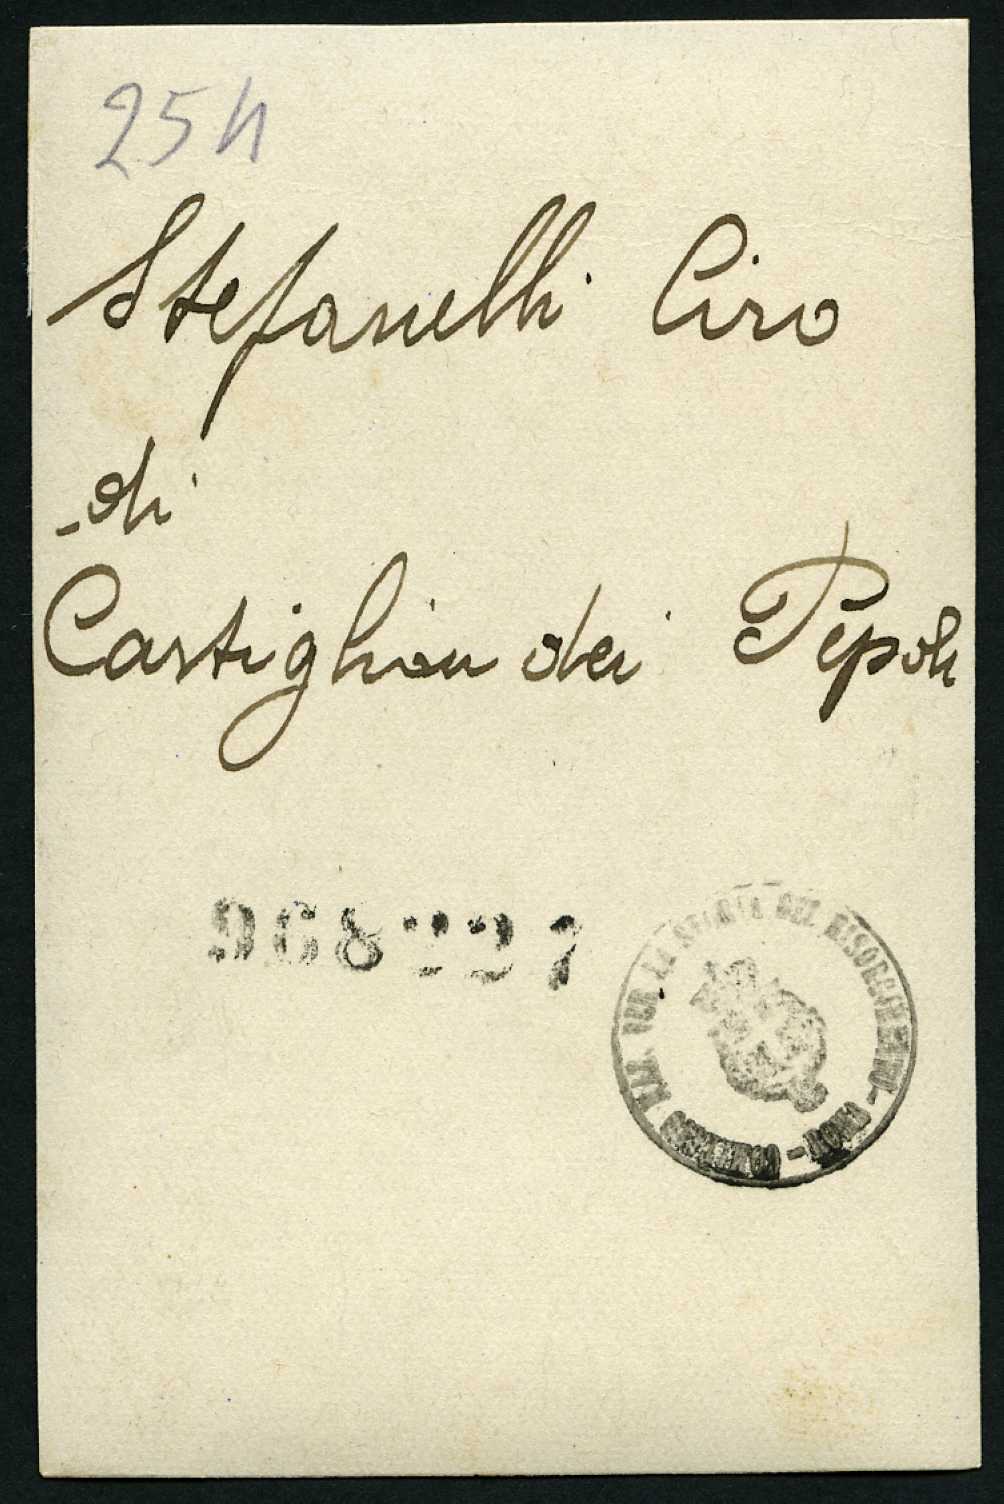 25h
Stefanelli Ciro
di
Castiglion dei Pepoli
968227
COMITATO NAZ. PER LA STORIA DEL RISORGIMENTO - ROMA -